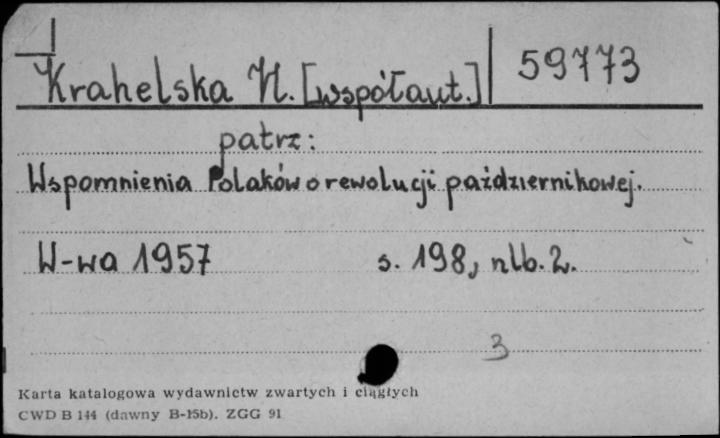 Krahelska H. [współaut.] 59773
patrz:
Wspomnienia Polaków o rewolucji październikowej.
W-wa 1957 s. 198, nlb. 2.
3
Karta katalogowa wydawnictw zwartych i ciągłych
CWD B 144 (dawny B-15b). ZGG 91